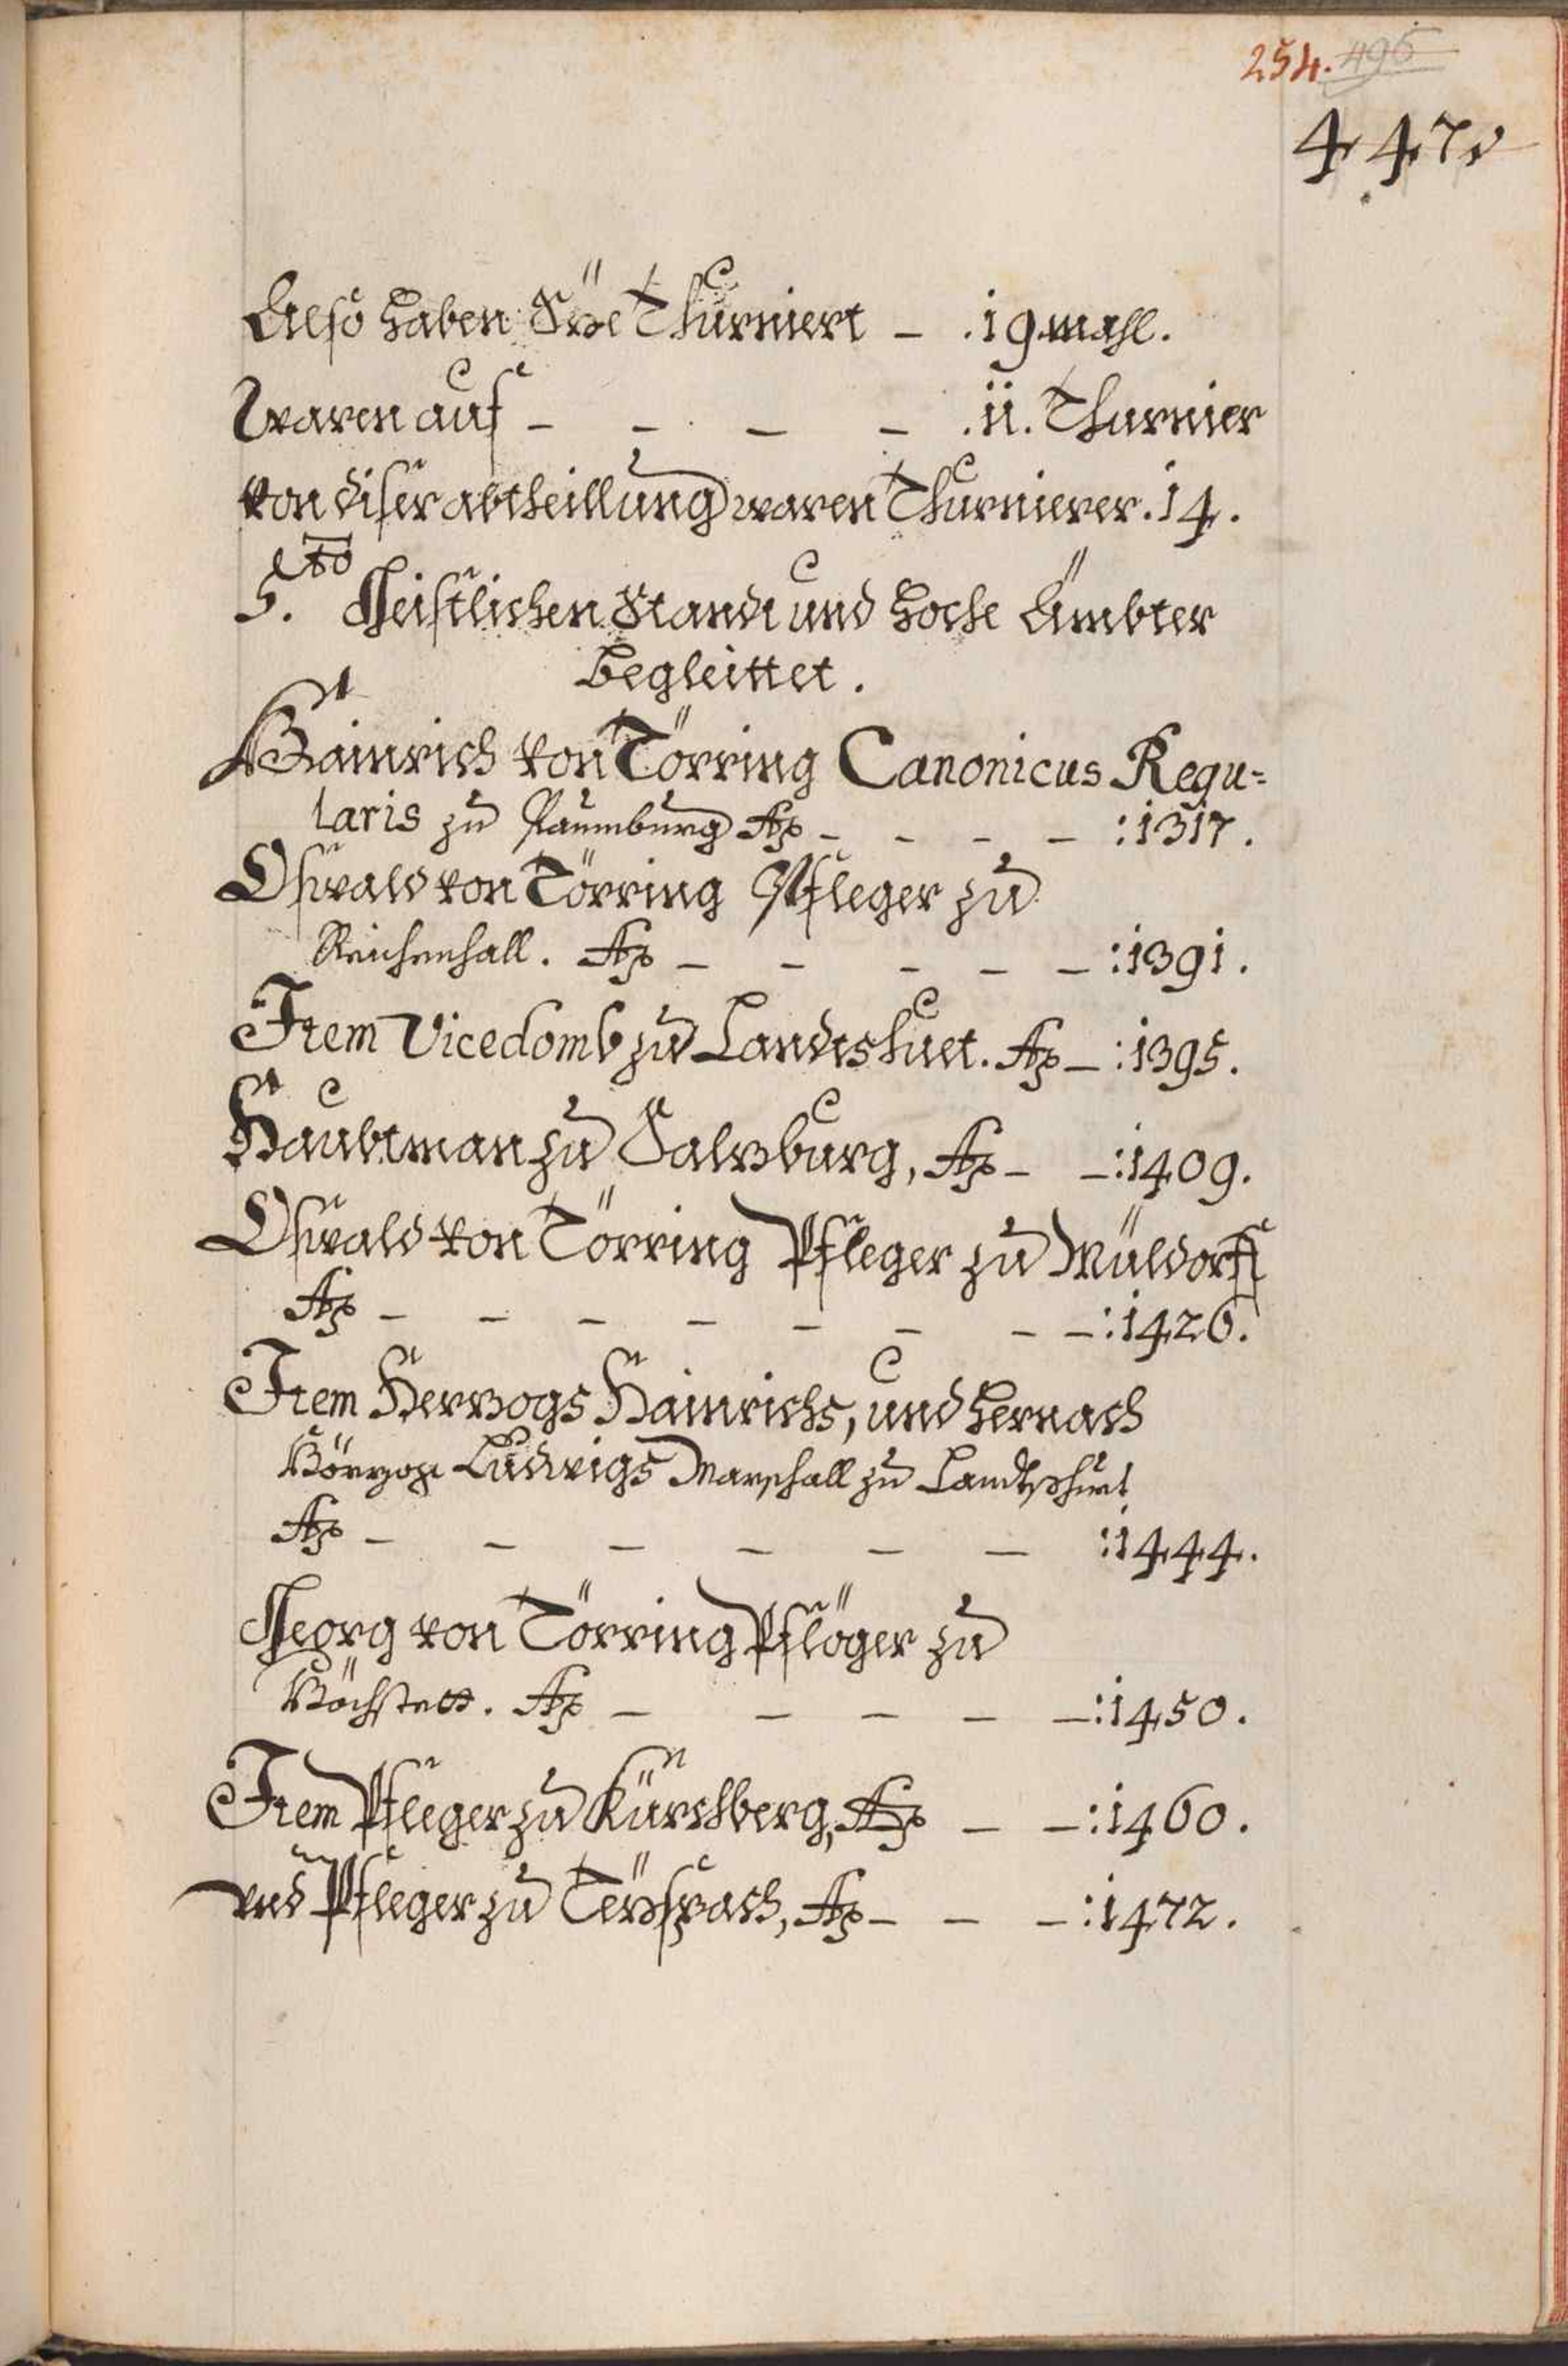 254. 495
447.
Also haben Sÿe Thurniert – .19 mahl.
Waren auf – – – – .11. Thurnier
von diser abtheillung waren Thurnierer. 14.
5.to Geistlichen Standt und hoche Ämbter
begleittet.
Hainrich von Törring Canonicus Regu=
laris zu Paumburg Aõ – – – – :1317.
Oswald von Törring Pfleger zu
Reichenhall. Aõ – – – – – :1391.
Item Vicedomb zu Landtshuet. Aõ – :1395.
Haubtman zu Saltzburg, Aõ – – :1409.
Oswald von Törring Pfleger zu Müldorff
Aõ – – – – – – – – :1426.
Item Hertzogs Hainrichs, und hernach
Hörzog Ludwigs Marschall zu Landtshuet
Aõ – – – – – – :1444.
Georg von Törring Pflöger zu
Höchstett. Aõ – – – – – :1450.
Item Pfleger zu Kürchberg, Aõ – – :1460.
und Pfleger zu Teyspach, Aõ – – – :1472.